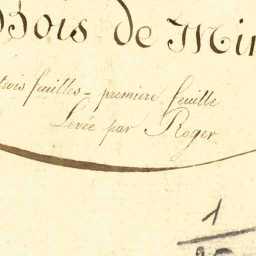 Bois de Min
trois feuilles = première feuille
Levée par Roger
1